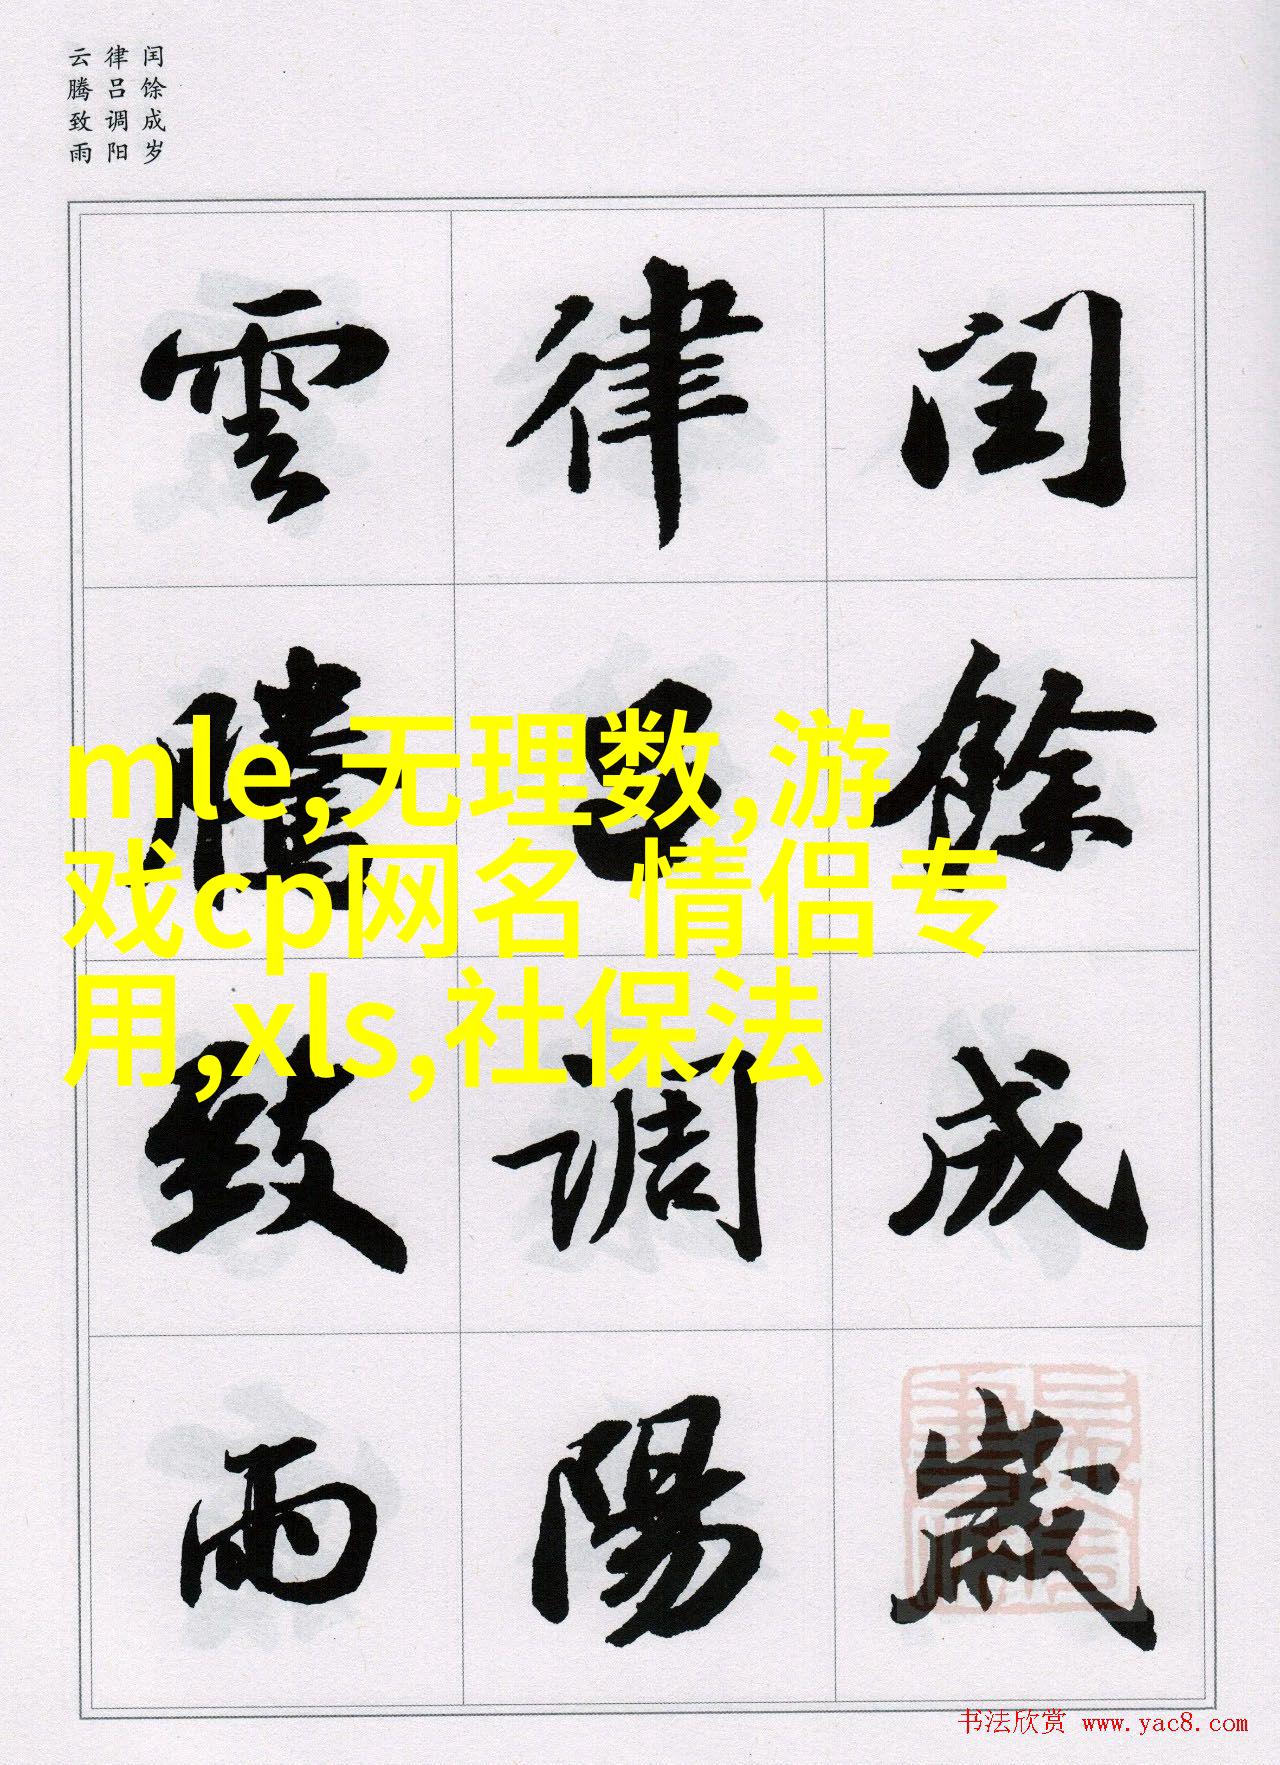 闰馀成岁
律吕调阳
云腾致雨
閏餘成歲
律吕調陽
雲騰致雨
mle,无理数,游
戏cp网名 情侣专
用,xls,社保法
书法欣赏 www.yac8.com